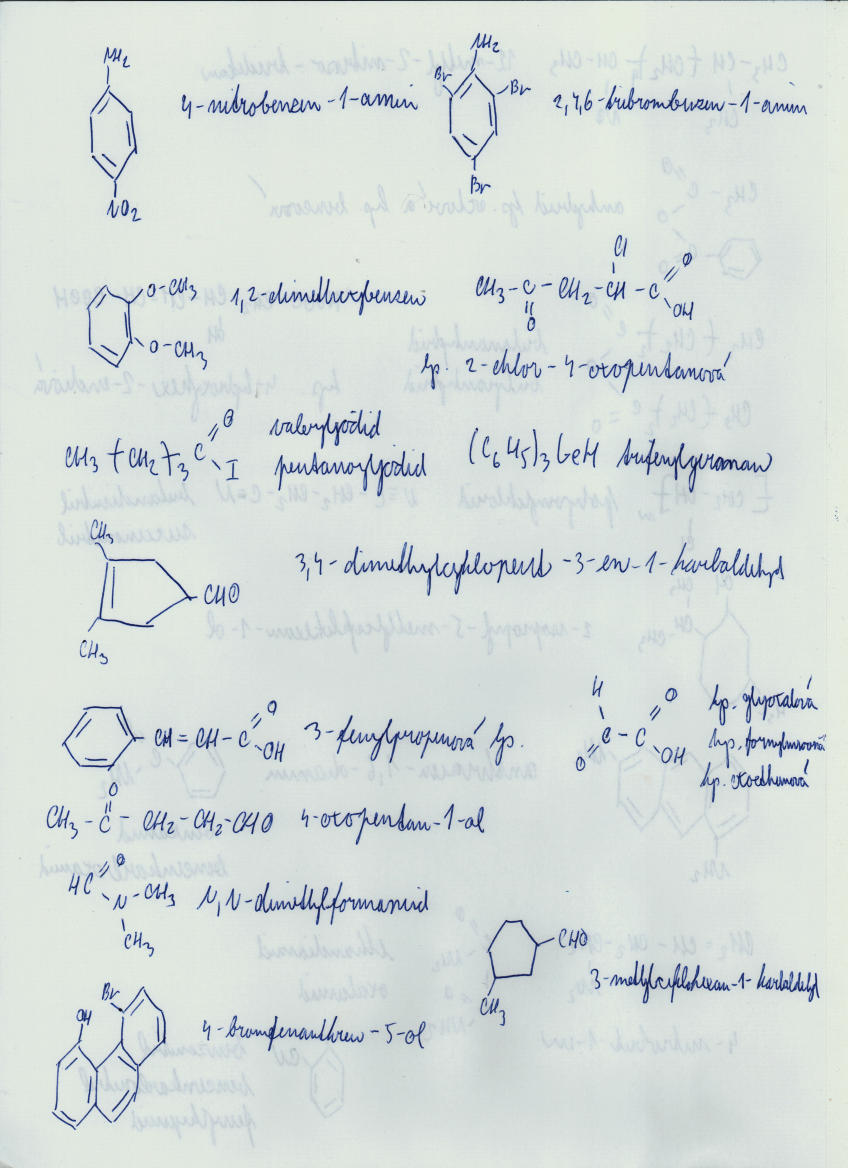 NH2
4-nitrobenzen-1-amin
NO2
NH2
Br
Br
Br
2,4,6-tribrombenzen-1-amin
O-CH3
O-CH3
1,2-dimethoxybenzen
Cl
CH3-C-CH2-CH-C
O
O
OH
kys. 2-chlor-4-oxopentanová
CH3-(CH2)3 C
O
I
valeryljodid
pentanoyljodid
(C6H5)3GeH trifenylgerman
CH3
CH3
CHO
3,4-dimethylcyklopent-3-en-1-karbaldehyd
CH=CH-C
O
OH
3-fenylpropenová kys.
H
O
C-C
O
OH
kys. glyoxalová
kys. oxoethanová
O
CH3-C-CH2-CH2-CHO 4-oxopentan-1-al
HC
O
N-CH3
CH3
N,N-dimethylformamid
CHO
CH3
3-methylcyklohexan-1-karbaldehyd
Br
OH
4-bromfenanthren-5-ol